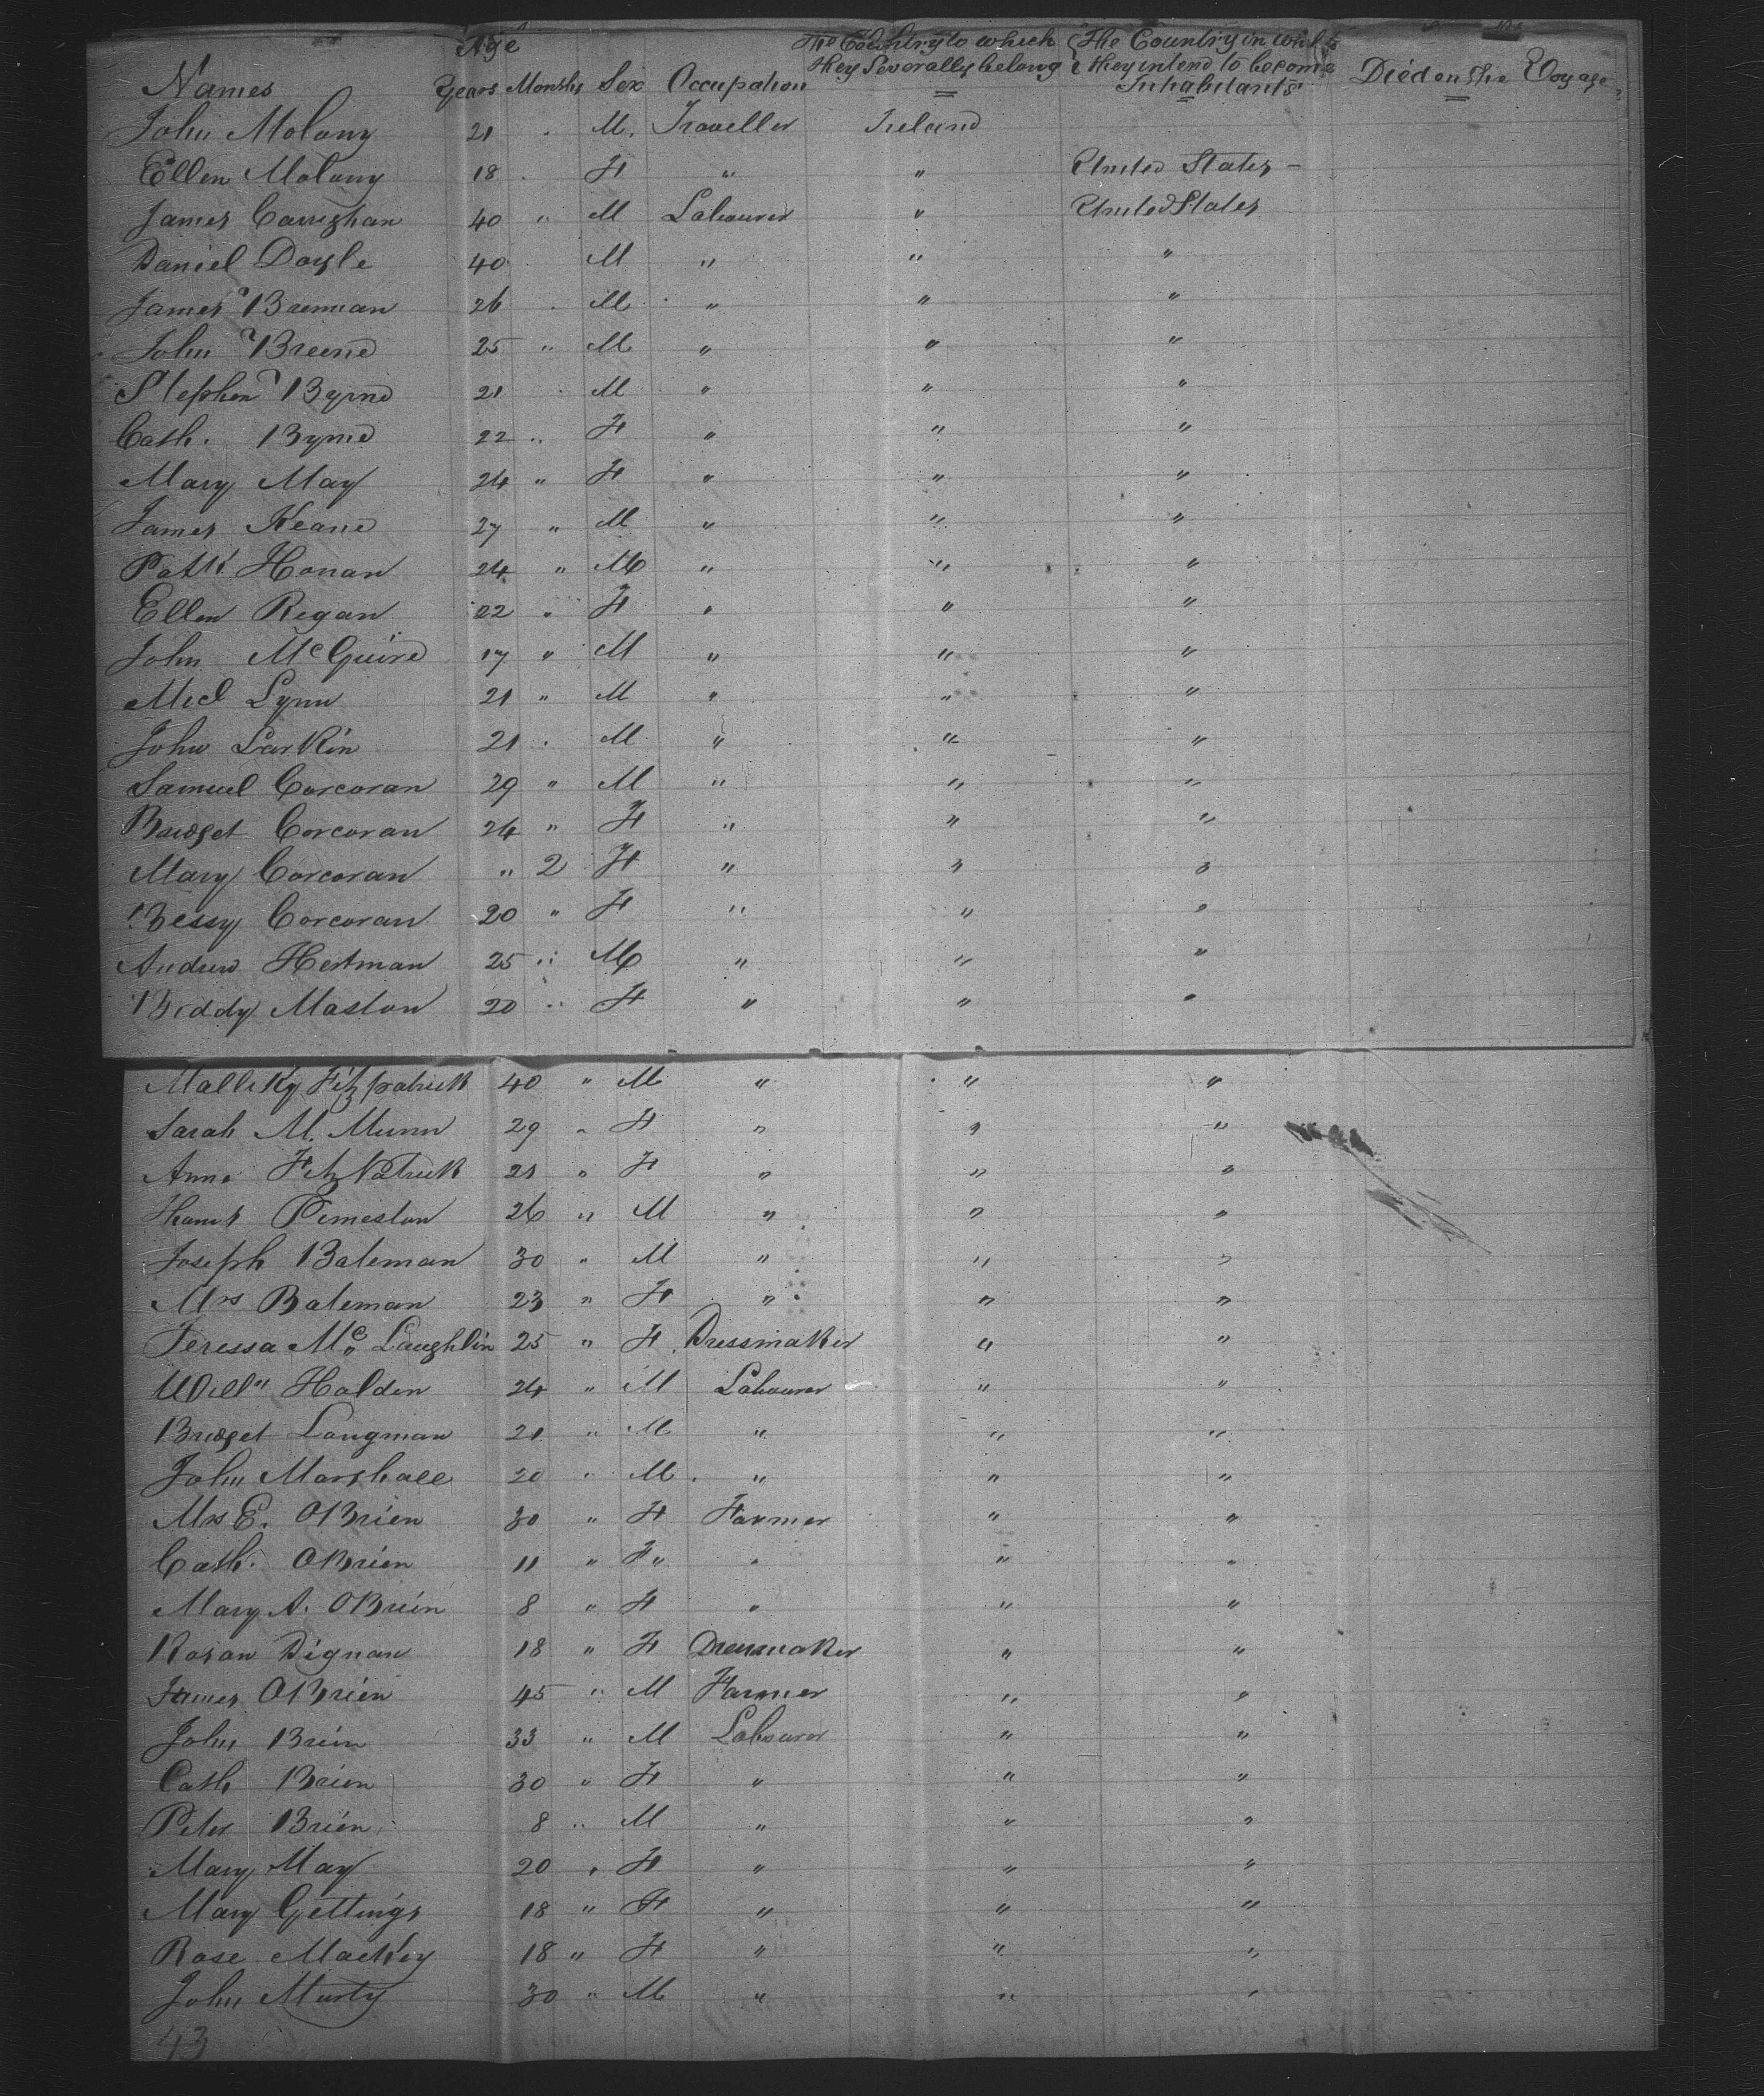 Age
The Country to which The Country in which
they Severally belong they intend to become
Names Years Months Sex Occupation Inhabitants Died on the Voyage
John Molony 21 " M. Traveller Ireland
Ellen Molony 18 " F " " United States -
James Carrighan 40 " M Labourer " United States
Daniel Doyle 40 M " " "
James Brennan 26 " M " " "
John Breene 25 " M " " "
Stephen Byrne 21 " M " " "
Cath. Byrne 22 " F " " "
Mary May 24 " F " " "
James Keane 27 " M " " "
Patk Honan 24 " M " " "
Ellen Regan 22 " F " " "
John McGuire 17 " M " " "
Micl Lynn 21 " M " " "
John Larkin 21 " M " " "
Samuel Corcoran 29 " M " " "
Bridget Corcoran 24 " F " " "
Mary Corcoran " 2 F " " "
Bessy Corcoran 20 " F " " "
Andrew Hertman 25 " M " " "
Biddy Maslon 20 " F " " "
Mallicky Fitzpatrick 40 " M " " "
Sarah M. Munn 29 " F " " "
Anne Fitzpatrick 21 " F " " "
Thomas Pimeston 26 " M " " "
Joseph Bateman 30 " M " " "
Mrs Bateman 23 " F " " "
Teressa Mc Laughlin 25 " F Dressmaker " "
Willm Holden 24 " M Labourer " "
Bridget Longman 21 " M " " "
John Marshall 20 " M " " "
Mrs E. OBrien 30 " F Farmer " "
Cath. OBrien 11 " F " " " "
Mary A. OBrien 8 " F " " "
Rosan Dignan 18 " F Dressmaker " "
James OBrien 45 " M Farmer " "
John Brien 33 " M Labourer " "
Cath Brien 30 " F " " "
Peter Brien 8 " M " " "
Mary May 20 " F " " "
Mary Gettings 18 " F " " "
Rose Mackey 18 " F " " "
John Murty 30 " M " " "
43